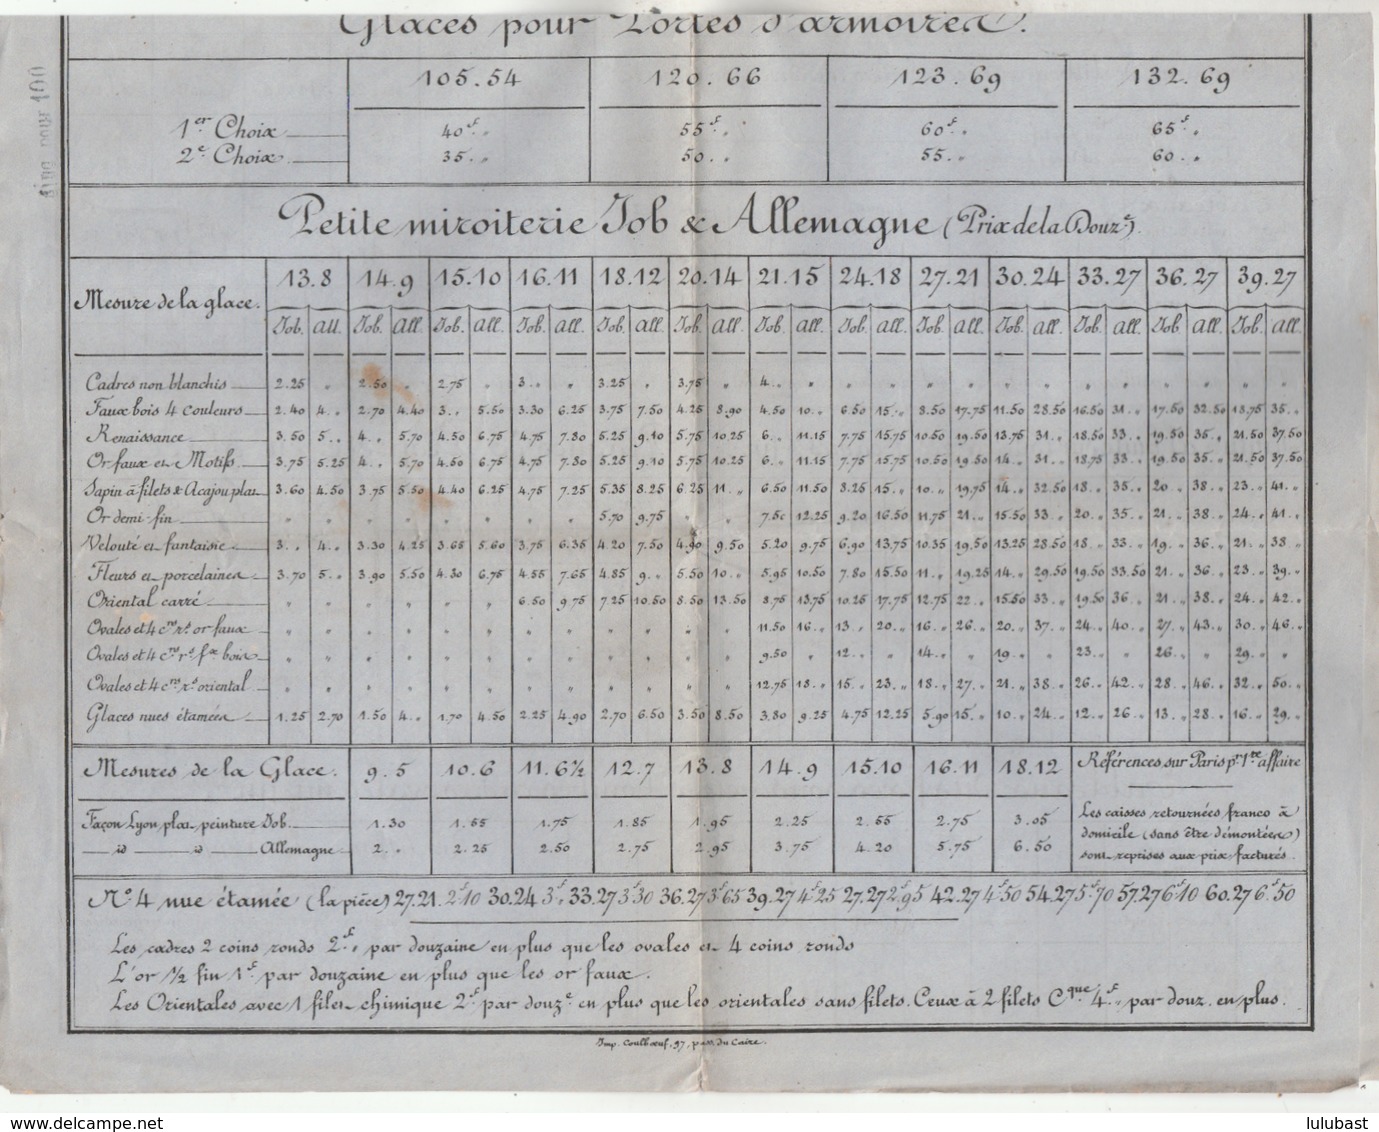 Glaces pour Portes d'armoires.
105.54 120.66 123.69 132.69
1er Choix 40f. „ 55f. „ 60f. „ 65f. „
2e Choix 35. „ 50. „ 55. „ 60. „
Petite miroiterie Job & Allemagne (Prix de la Douze)
Mesure de la glace. 13.8 14.9 15.10 16.11 18.12 20.14 21.15 24.18 27.21 30.24 33.27 36.27 39.27
Job. All. Job. All. Job. All. Job. All. Job. All. Job. All. Job. All. Job. All. Job. All. Job. All. Job. All. Job. All. Job. All.
Cadres non blanchis 2.25 „ 2.50 „ 2.75 „ 3. „ „ 3.25 „ 3.75 „ 4. „ „ „ „ „ „ „ „ „ „ „ „ „
Faux bois 4 couleurs 2.40 4. „ 2.70 4.40 3. „ 5.50 3.30 6.25 3.75 7.50 4.25 8.90 4.50 10. „ 6.50 15. „ 8.50 17.75 11.50 28.50 16.50 31. „ 17.50 32.50 18.75 35. „
Renaissance 3.50 5. „ 4. „ 5.70 4.50 6.75 4.75 7.80 5.25 9.10 5.75 10.25 6. „ 11.15 7.75 15.75 10.50 19.50 13.75 31. „ 18.50 33. „ 19.50 35. „ 21.50 37.50
Or faux et Motifs 3.75 5.25 4. „ 5.70 4.50 6.75 4.75 7.80 5.25 9.10 5.75 10.25 6. „ 11.15 7.75 15.75 10.50 19.50 14. „ 31. „ 18.75 33. „ 19.50 35. „ 21.50 37.50
Sapin à filets & Acajou plat 3.60 4.50 3.75 5.50 4.40 6.25 4.75 7.25 5.35 8.25 6.25 11. „ 6.50 11.50 8.25 15. „ 10. „ 19.75 14. „ 32.50 18. „ 35. „ 20. „ 38. „ 23. „ 41. „
Or demi-fin „ „ „ „ „ „ „ „ 5.70 9.75 „ „ 7.50 12.25 9.20 16.50 11.75 21. „ 15.50 33. „ 20. „ 35. „ 21. „ 38. „ 24. „ 41. „
Velouté et fantaisie 3. „ 4. „ 3.30 4.25 3.65 5.60 3.75 6.35 4.20 7.50 4.90 9.50 5.20 9.75 6.90 13.75 10.35 19.50 13.25 28.50 18. „ 33. „ 19. „ 36. „ 21. „ 38. „
Fleurs et porcelaines 3.70 5. „ 3.90 5.50 4.30 6.75 4.55 7.65 4.85 9. „ 5.50 10. „ 5.95 10.50 7.80 15.50 11. „ 19.25 14. „ 29.50 19.50 33.50 21. „ 36. „ 23. „ 39. „
Oriental carré „ „ „ „ „ „ 6.50 9.75 7.25 10.50 8.50 13.50 8.75 13.75 10.25 17.75 12.75 22. „ 15.50 33. „ 19.50 36. „ 21. „ 38. „ 24. „ 42. „
Ovales et 4 cns rds or faux „ „ „ „ „ „ „ „ „ „ „ „ 11.50 16. „ 13. „ 20. „ 16. „ 26. „ 20. „ 37. „ 24. „ 40. „ 27. „ 43. „ 30. „ 46. „
Ovales et 4 cns rds fx bois „ „ „ „ „ „ „ „ „ „ „ „ 9.50 „ 12. „ „ 14. „ „ 19. „ „ 23. „ „ 26. „ „ 29. „ „
Ovales et 4 cns rds oriental „ „ „ „ „ „ „ „ „ „ „ „ 12.75 18. „ 15. „ 23. „ 18. „ 27. „ 21. „ 38. „ 26. „ 42. „ 28. „ 46. „ 32. „ 50. „
Glaces nues étamées 1.25 2.70 1.50 4. „ 1.70 4.50 2.25 4.90 2.70 6.50 3.50 8.50 3.80 9.25 4.75 12.25 5.90 15. „ 10. „ 24. „ 12. „ 26. „ 13. „ 28. „ 16. „ 29. „
Mesures de la Glace. 9.5 10.6 11.6½ 12.7 13.8 14.9 15.10 16.11 18.12
Références sur Paris pr 1re affaire
Façon Lyon plat peinture Job. 1.30 1.55 1.75 1.85 1.95 2.25 2.55 2.75 3.05
id id Allemagne 2. „ 2.25 2.50 2.75 2.95 3.75 4.20 5.75 6.50
Les caisses retournées franco à
domicile (sans être démontées)
sont reprises aux prix facturés.
No 4 nue étamée (la pièce) 27.21. 2f10 30.24 3f. „ 33.27 3f30 36.27 3f65 39.27 4f25 27.27 2f95 42.27 4f50 54.27 5f70 57.27 6f10 60.27 6f50
Les cadres 2 coins ronds 2f. „ par douzaine en plus que les ovales et 4 coins ronds
L'or ½ fin 1f par douzaine en plus que les or faux.
Les Orientales avec 1 filet chimique 2f. par douze en plus que les orientales sans filets. Ceux à 2 filets Cque 4f. „ par douz. en plus.
Imp. Coulbœuf, 97, pass. du Caire.
delcampe.net
lulubast